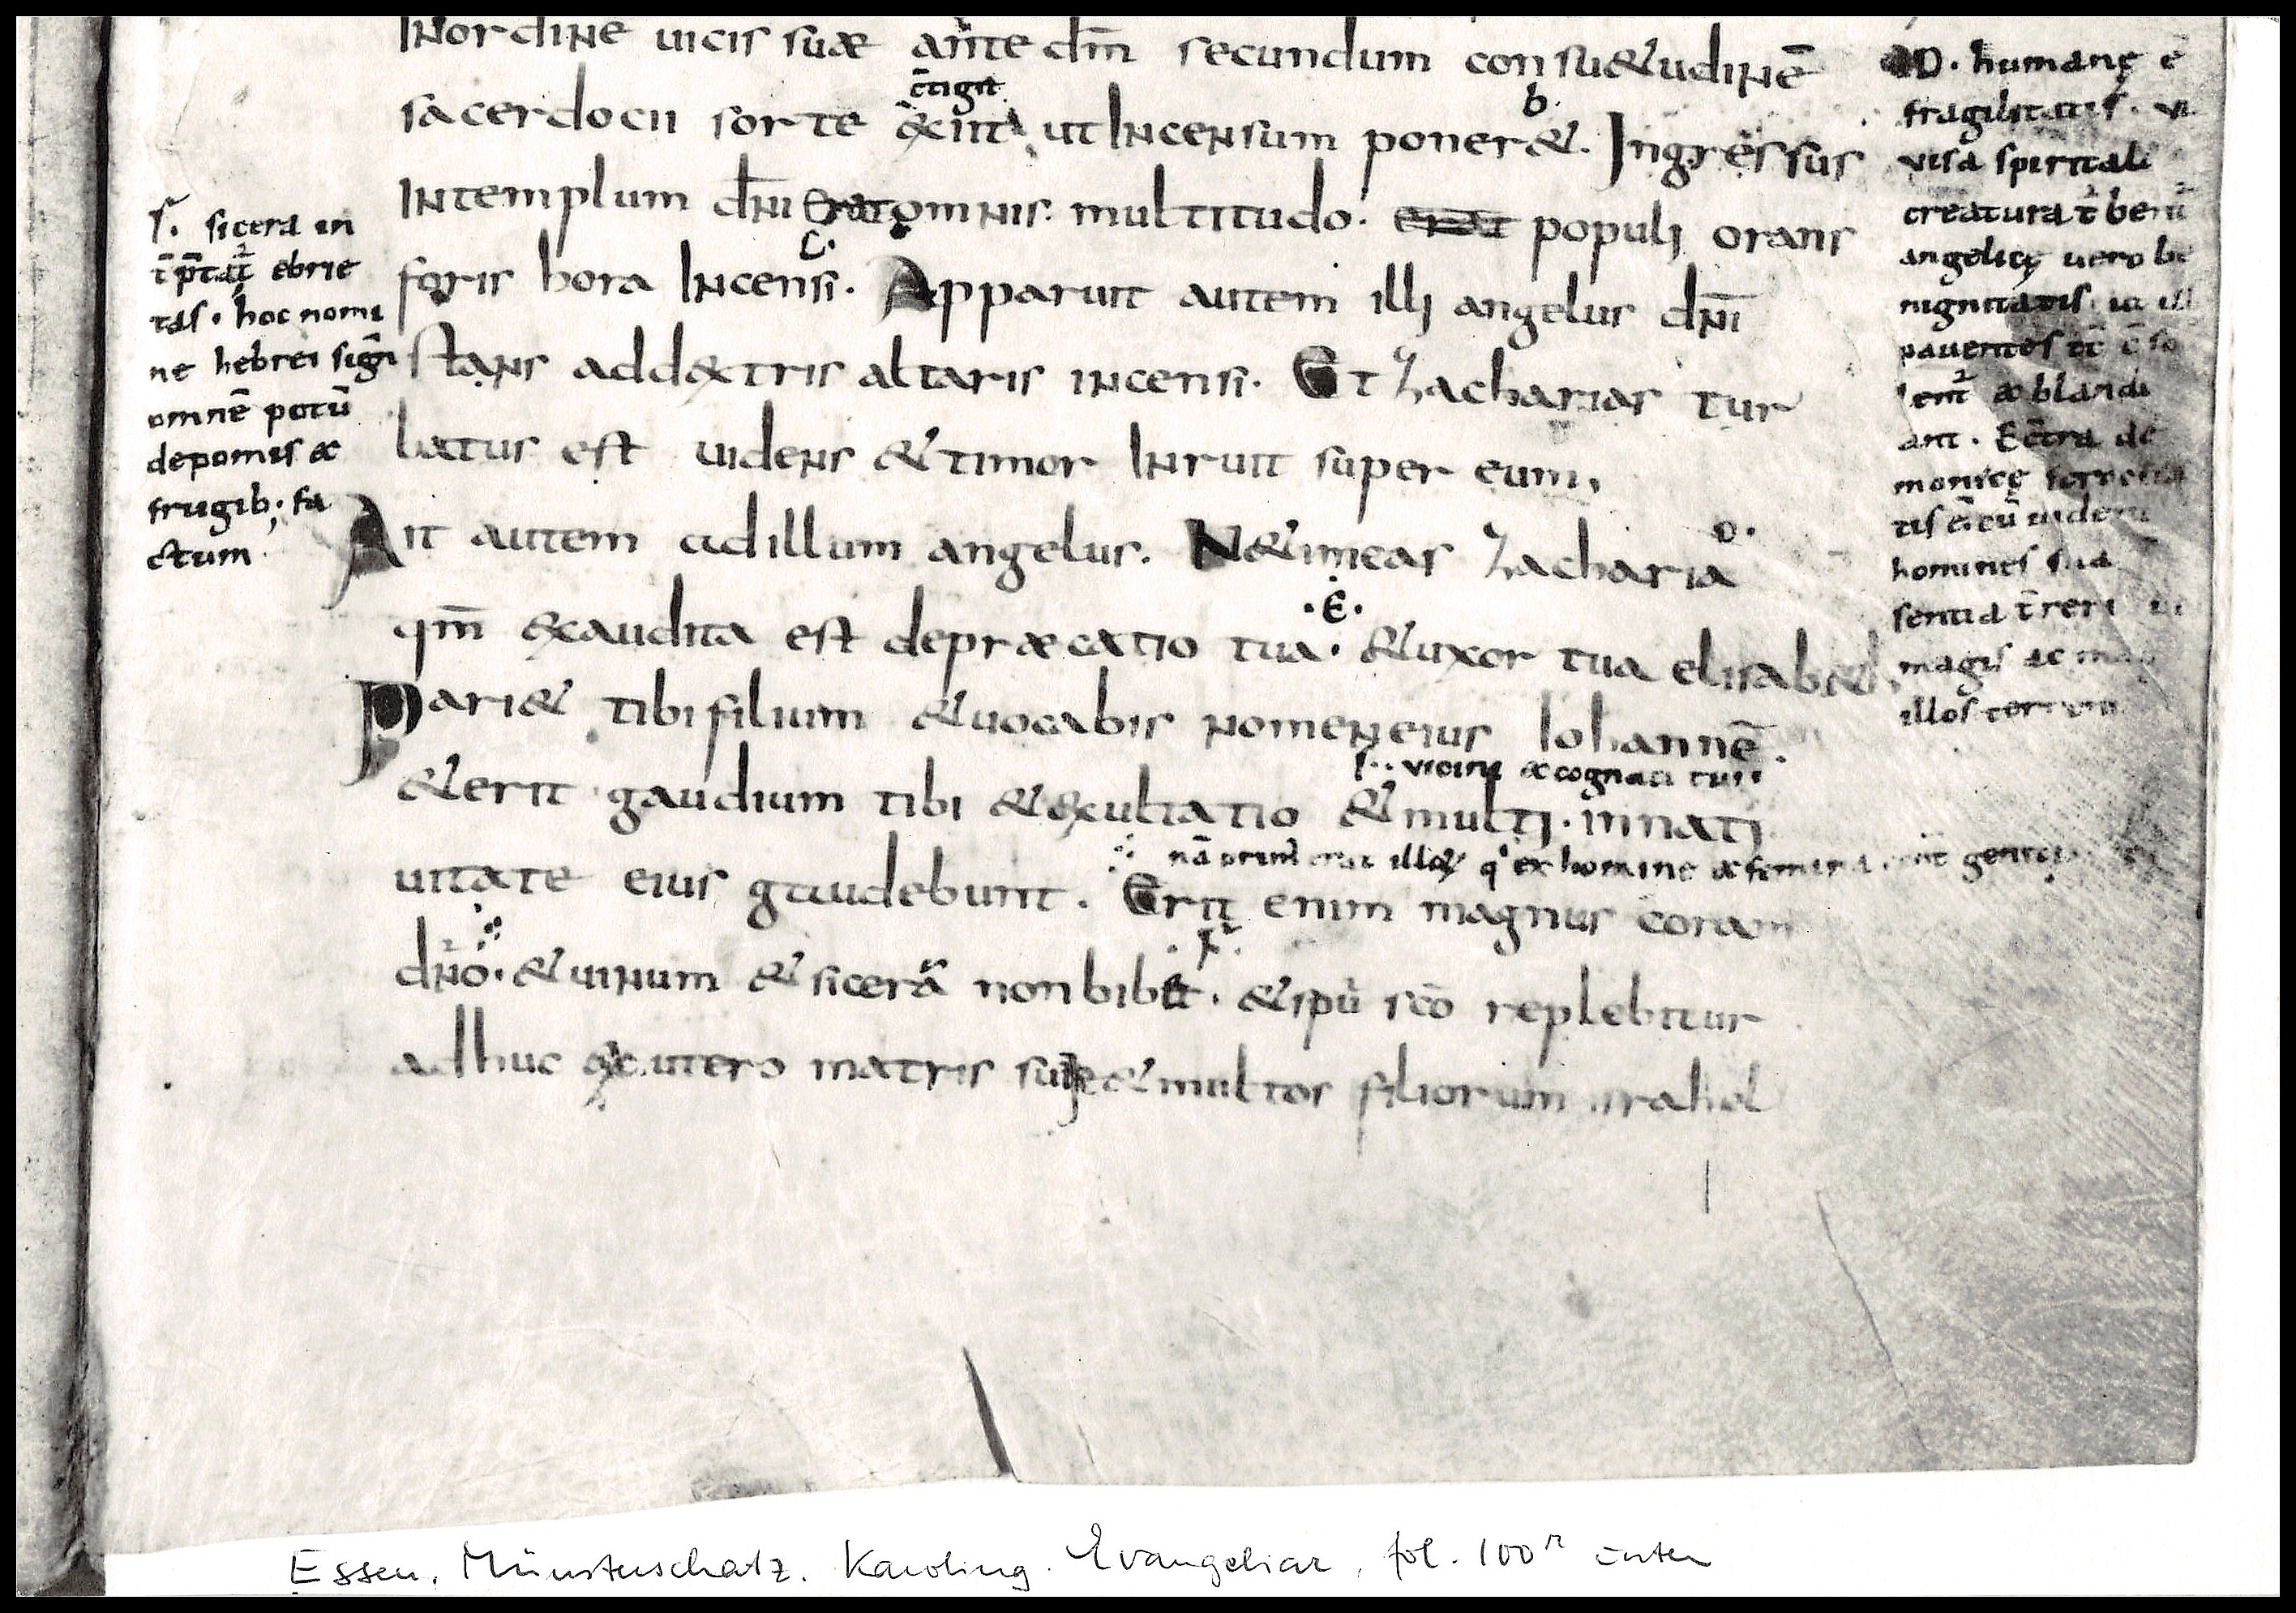 INordine uicis suæ ante dm̄ secundum consu&udinē
c̄tigit
sacerdocii sorte exiit ut Incensum poner&. Ingressus
b.
INtemplum dn̄i erat omnis multitudo. erat populi orans
c.
foris hora Incensi. Apparuit autem illi angelus dn̄i
stans addextris altaris incensi. Et Zacharias tur
batus est uidens & timor Inruit super eum,
Ait autem ad illum angelus. Netimeas Zacharia
D.
qm̄ exaudita est depræcatio tua. & uxor tua elisab&
.E.
Pari& tibi filium & uocabis nomen eius Iohannē.
uicini & cognati tui
& erit gaudium tibi & exultatio & multi. in nati
nā ex homine & femina
uitate eius gaudebunt. Erit enim magnus coram
dn̄o. & uinum & sicerā non bib&. & spū sc̄o replebitur
adhuc ex utero matris suæ & multos filiorum israhel
F. sicera in
t̄p̄tat̄ ebrie
tas. hoc nomi
ne hebrei sign̄
omnē potū
depomis &
frugib; fa
ctum
D. humanę ē
fragilitatis.
visa spiritali
creatura
angelicę uero be
nignitatis
pauentes
& blandi
ant. Ec̄tra de
monicę
tis
homines sua
magis ac
illos
Essen, Münsterschatz. Karoling. Evangeliar, fol. 100r unten